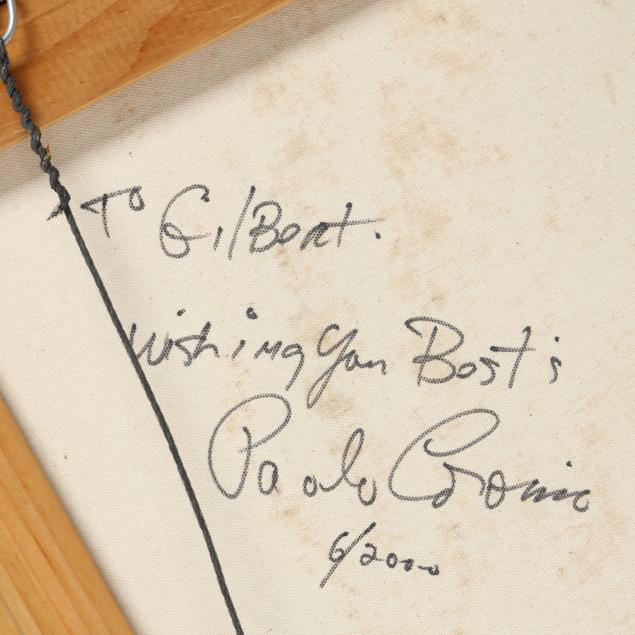 To Gilbert.
Wishing You Best's
Paolo Corvino
6/2000